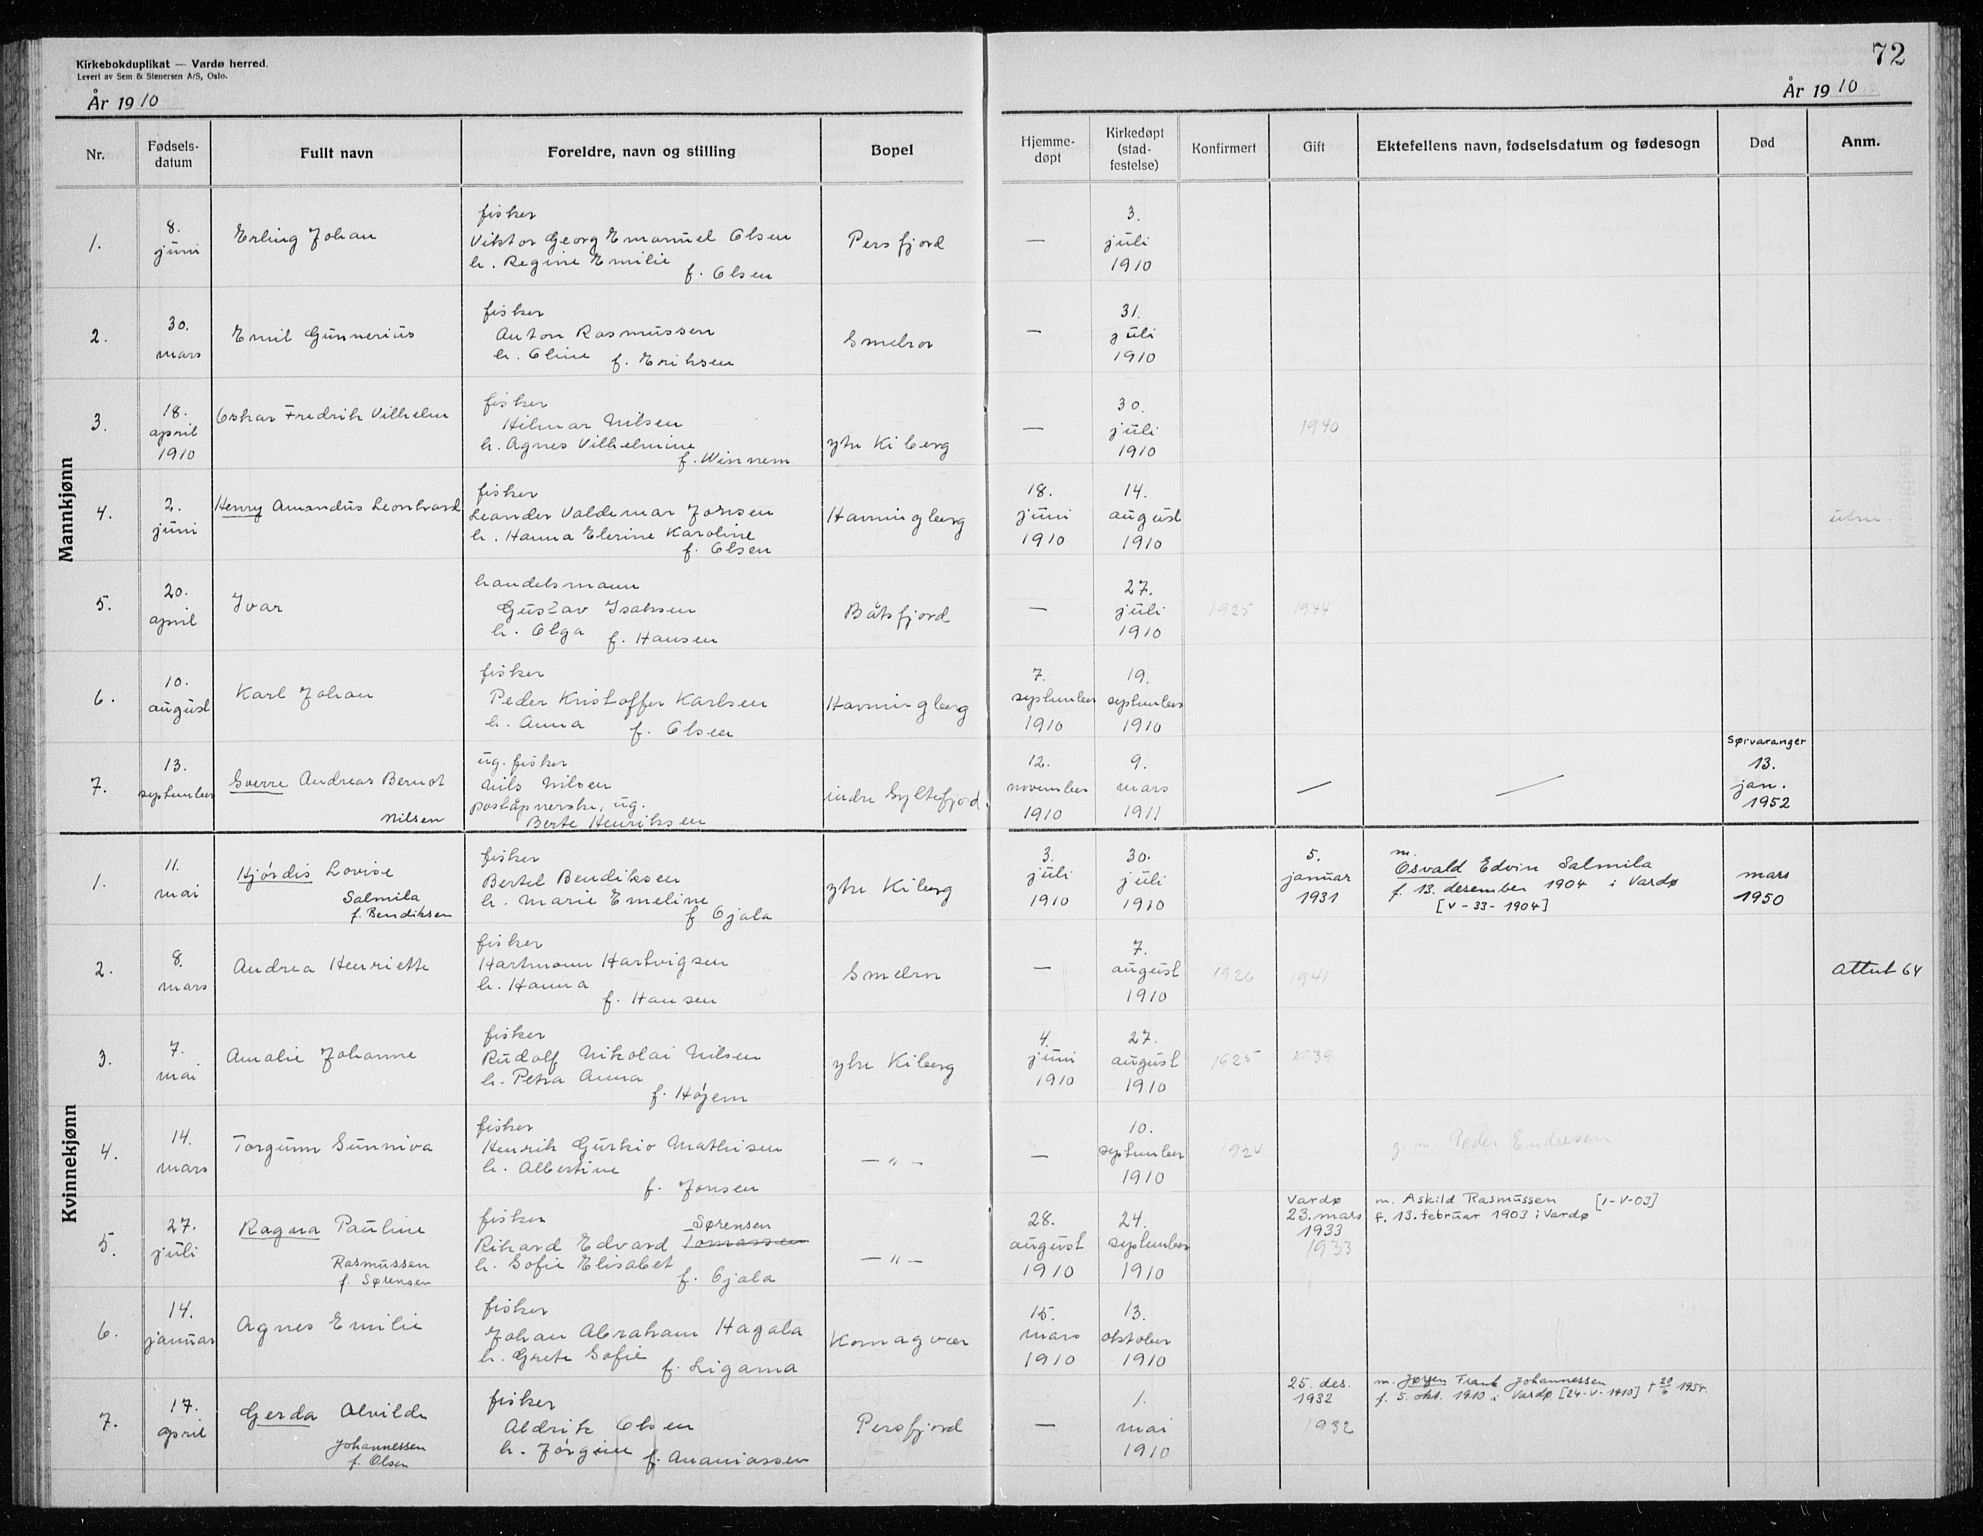 72
Kirkebokduplikat — Vardø herred.
Levert av Sem & Stenersen A/S, Oslo.
År 1910
År 1910
Nr.
Fødsels-
datum
Fullt navn
Foreldre, navn og stilling
Bopel
Hjemme-
døpt
Kirkedøpt
(stad-
festelse)
Konfirmert
Gift
Ektefellens navn, fødselsdatum og fødesogn
Død
Anm.
Mannkjønn
1.
8.
juni
Erling Johan
fisker
Viktor Georg Emanuel Olsen
h. Regine Emilie
f. Olsen
Persfjord
—
3.
juli
1910
2.
30.
mars
Emil Gunnerius
fisker
Anton Rasmussen
h. Oline f. Eriksen
Smelror
—
31.
juli
1910
3.
18.
april
1910
Oskar Fredrik Vilhelm
fisker
Hilmar Nilsen
h. Agnes Vilhelmine
f. Winnem
ytre Kiberg
—
30.
juli
1910
1940
4.
2.
juni
Henry Amandus Leonhard
fisker
Leander Valdemar Jonsen
h. Hanna Elerine Karoline
f. Olsen
Havningberg
18.
juni
1910
14.
august
1910
5.
20.
april
Ivar
handelsmann
Gustav Isaksen
h. Olga f. Hansen
Båtsfjord
—
27.
juli
1910
1925
1944
6.
10.
august
Karl Johan
fisker
Peder Kristoffer Karlsen
h. Anna f. Olsen
Havningberg
7.
september
1910
19.
september
1910
7.
13.
september
Sverre Andreas Berndt
Nilsen
ug. fisker
Nils Nilsen
poståpnerske, ug.
Berte Henriksen
indre Syltefjord
12.
november
1910
9.
mars
1911
—
—
Sørvaranger
13.
jan.
1952
Kvinnekjønn
1.
11.
mai
Hjørdis Lovise
Salmila
f. Bendiksen
fisker
Bertel Bendiksen
h. Marie Emeline
f. Ojala
ytre Kiberg
3.
juli
1910
30.
juli
1910
5.
januar
1931
m.
Osvald Edvin Salmila
f. 13. desember 1904 i Vardø
[V-33-1904]
mars
1950
2.
8.
mars
Andrea Henriette
fisker
Hartmann Hartvigsen
h. Hanna
f. Hansen
Smelror
—
7.
august
1910
1926
1941
Attest 64
3.
7.
mai
Amalie Johanne
fisker
Rudolf Nikolai Nilsen
h. Petra Anna
f. Højem
ytre Kiberg
4.
juni
1910
27.
august
1910
1925
1939
4.
14.
mars
Torgunn Sunniva
fisker
Henrik Gurkio Mathisen
h. Albertine
f. Jonsen
— " —
—
10.
september
1910
1924
g. m. Peder Endresen
5.
27.
juli
Ragna Pauline
Rasmussen
f. Sørensen
fisker
Sørensen
Rikard Edvard Tomassen
h. Sofie Elisabet
f. Ojala
— " —
28.
august
1910
24.
september
1910
Vardø
23. mars
1933
1933
m. Askild Rasmussen [1-V-03]
f. 13. februar 1903 i Vardø
6.
14.
januar
Agnes Emilie
fisker
Johan Abraham Hagala
h. Grete Sofie
f. Ligama
Komagvær
15.
mars
1910
13.
oktober
1910
7.
17.
april
Gerda Alvilde
Johannessen
f. Olsen
fisker
Aldrik Olsen
h. Jørgine
f. Ananiassen
Persfjord
—
1.
mai
1910
25. des.
1932
1932
m. Jørgen Frant Johannessen
f. 5. okt. 1910 i Vardø [24-V-1910] † 20/6 1954.